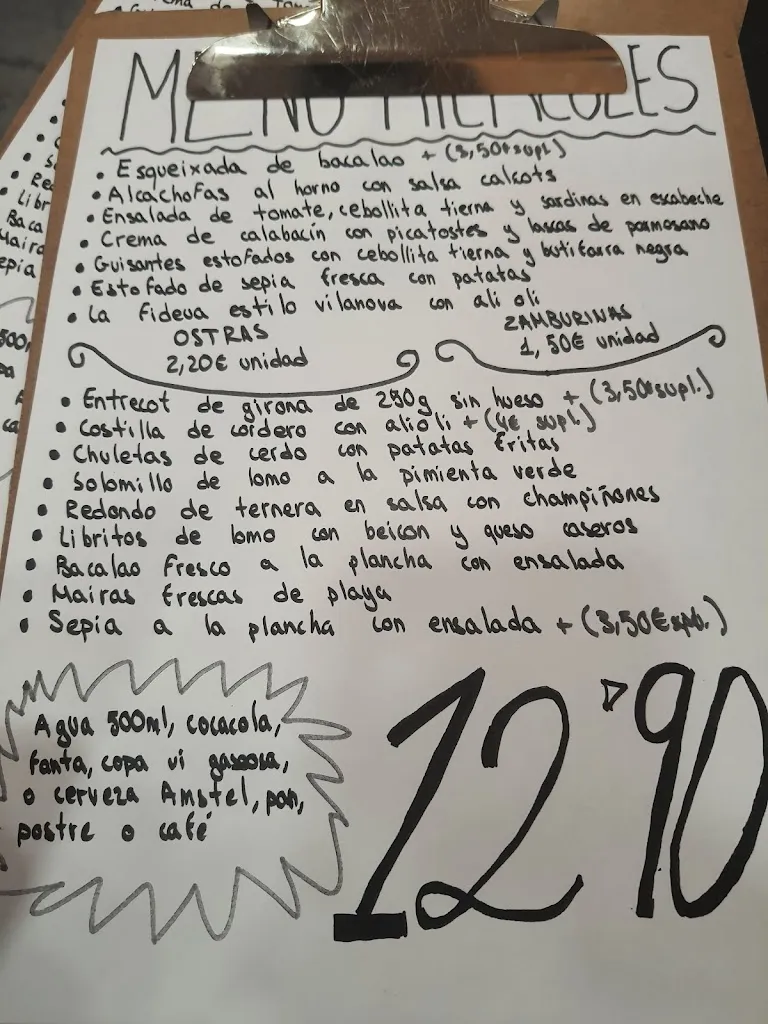 MENÚ MIERCOLES
• Esqueixada de bacalao + (3,50€ supl)
• Alcachofas al horno con salsa calçots
• Ensalada de tomate, cebollita tierna y sardinas en escabeche
• Crema de calabacín con picatostes y lascas de parmosano
• Guisantes estofados con cebollita tierna y butifarra negra
• Estofado de sepia fresca con patatas
• La fideua estilo vilanova con ali oli
OSTRAS
2,20€ unidad
ZAMBURINAS
1,50€ unidad
• Entrecot de girona de 250g sin hueso + (3,50€ supl.)
• Costilla de cordero con alioli + (4€ supl.)
• Chuletas de cerdo con patatas fritas
• Solomillo de lomo a la pimienta verde
• Redondo de ternera en salsa con champiñones
• Libritos de lomo con beicon y queso caseros
• Bacalao fresco a la plancha con ensalada
• Mairas frescas de playa
• Sepia a la plancha con ensalada + (3,50€ spl.)
Agua 500ml, cocacola,
fanta, copa vi gaseosa,
o cerveza Amstel, pan,
postre o café
12'90